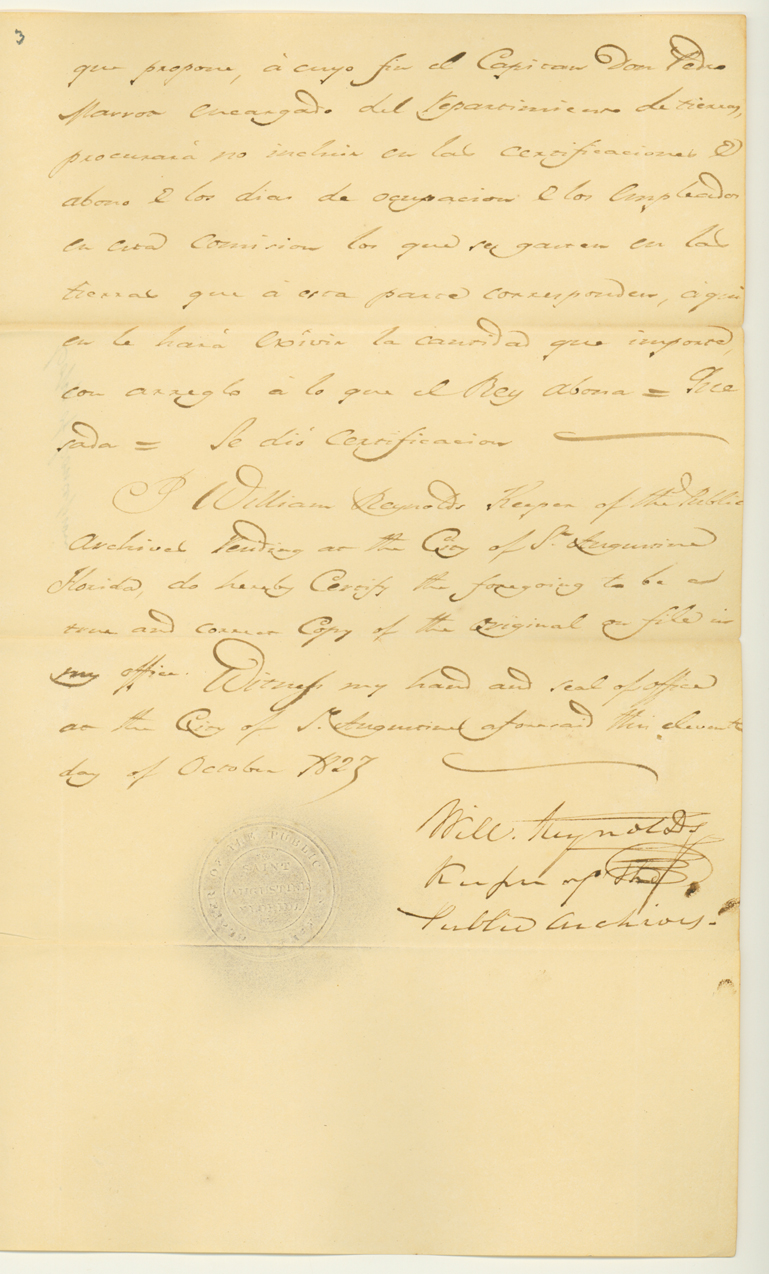 3
que propone, à cuyo fin el Capitan Don Pedro
Marrot encargado del Repartimiento de tierras,
procurará no incluir en las certificaciones d
abono d los dias de ocupacion d los Empleados
en esta Comision los que se gasten en las
tierras que à esta parte corresponden, à qui
en le hará exivir la cantidad que importe,
con arreglo à lo que el Rey abona = Que
sada = Se dió Certificacion
I William Reynolds Keeper of the Public
Archives at the City of St. Augustine
Florida, do hereby Certify the foregoing to be a
true and correct Copy of the Original on file in
my office. Witness my hand and seal of office
at the City of St. Augustine aforesaid this eleventh
day of October 1827
Will. Reynolds
Keeper of the
Public Archives.
KEEPER OF THE PUBLIC
SAINT
AUGUSTINE
FLORIDA